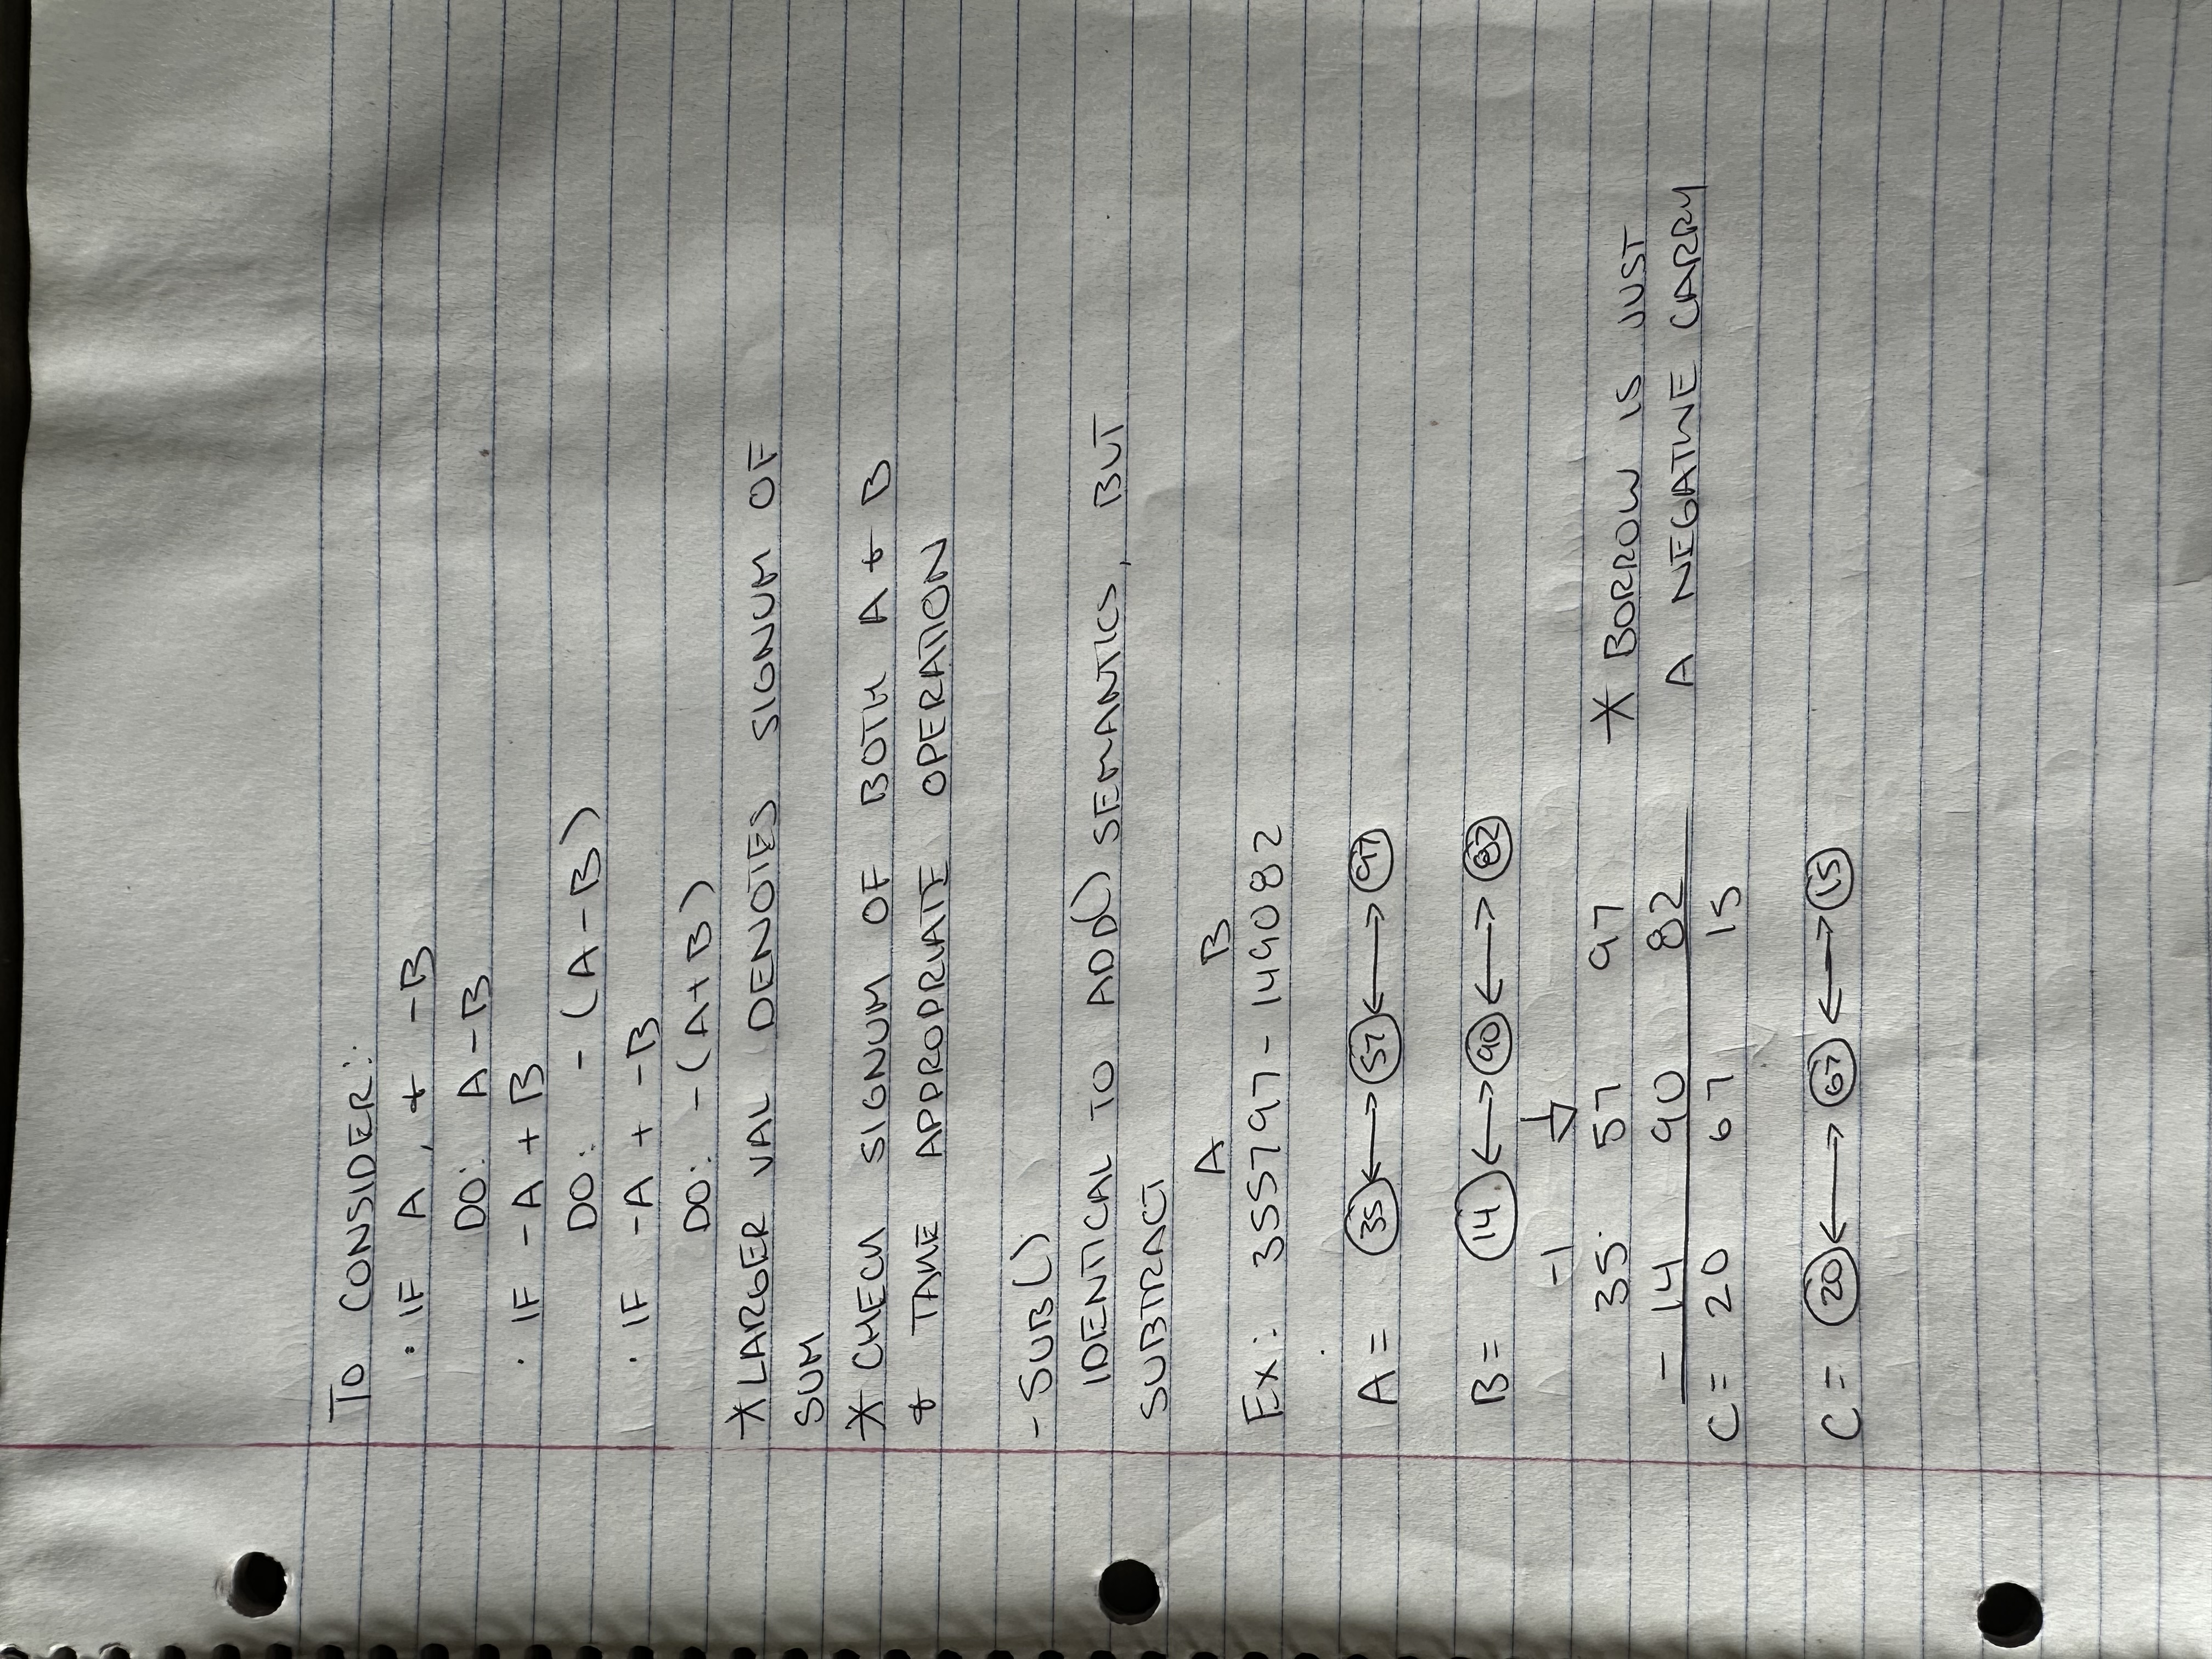 TO CONSIDER:
· IF A, & -B
DO: A-B
· IF -A + B
DO: -(A-B)
· IF -A + -B
DO: -(A+B)
*LARGER VAL DENOTES SIGNUM OF
SUM
* CHECK SIGNUM OF BOTH A & B
& TAKE APPROPRIATE OPERATION
- SUB()
IDENTICAL TO ADD() SEMANTICS, BUT
SUBTRACT
A B
Ex: 355797 - 149082
A = 35 ↔ 57 ↔ 97
B = 14 ↔ 90 ↔ 82
-1
35 57 97 * BORROW IS JUST
- 14 90 82 A NEGATIVE CARRY
C = 20 67 15
C = 20 ↔ 67 ↔ 15